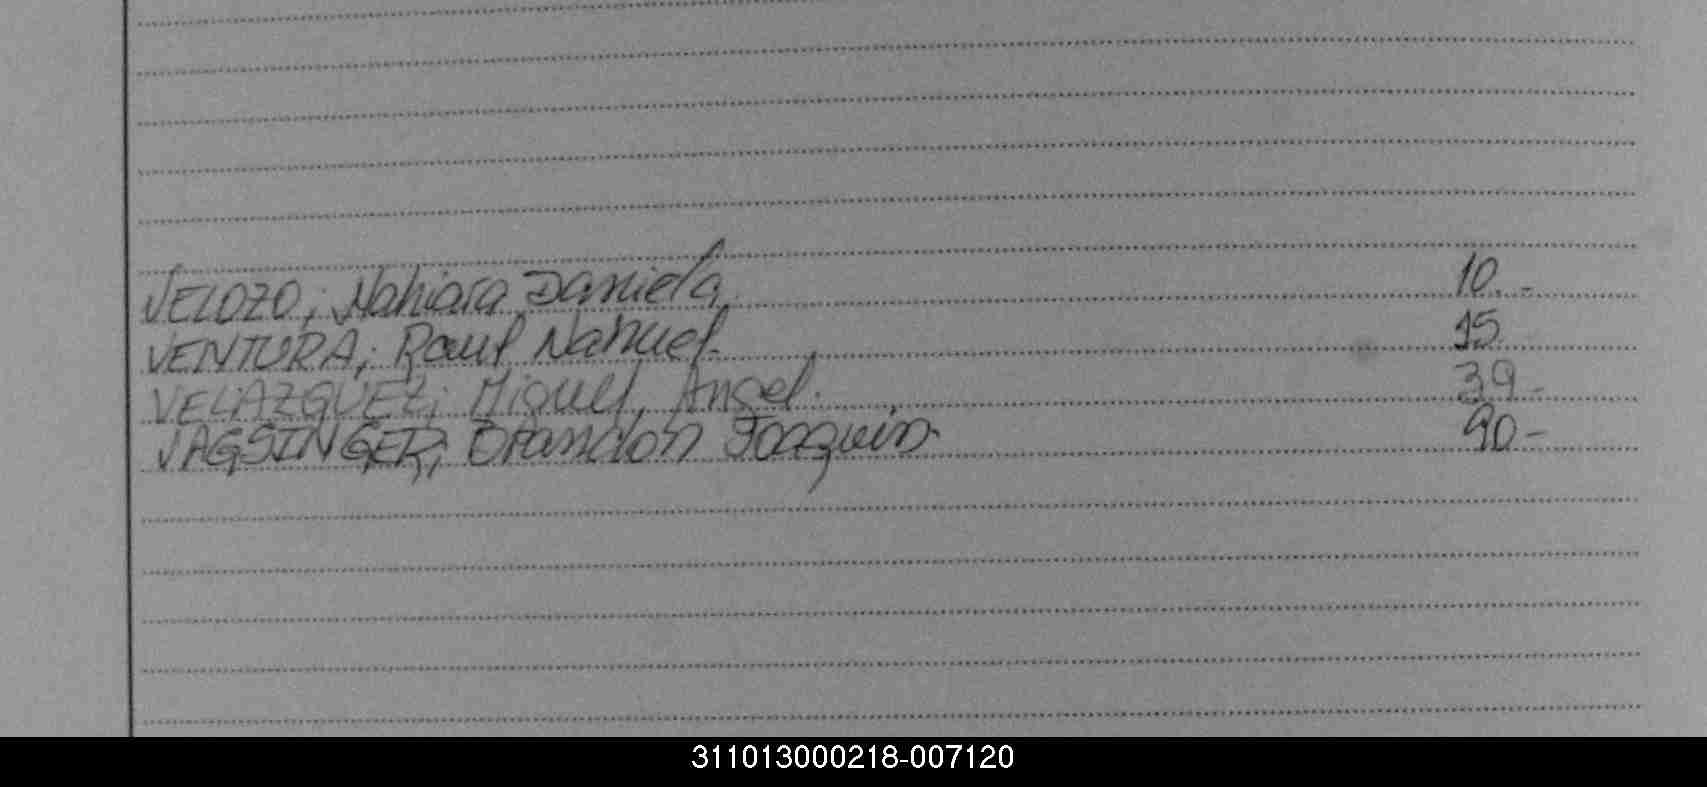 VELOZO; Nahiara Daniela. 10.-
VENTURA; Raul Nahuel. 15.
VELAZQUEZ; Miguel, Angel. 39.-
VAGSINGER, Brandon Joaquin. 90.-
311013000218-007120